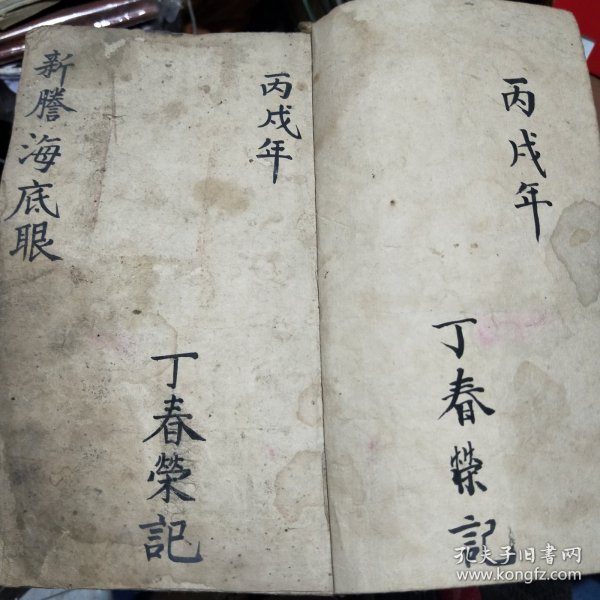 丙戌年
丁春榮記
丙戌年
丁春榮記
新謄海底眼
孔夫子旧书网
www.kongfz.com